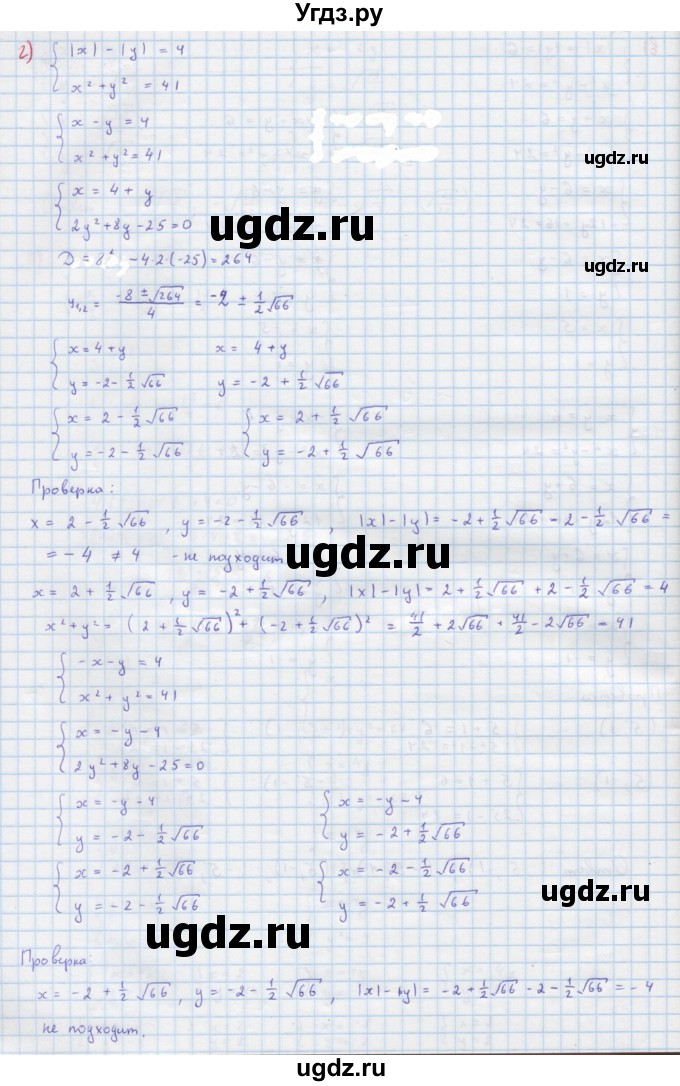 Угдз.ру
2) { |x| - |y| = 4
x² + y² = 41
{ x - y = 4
x² + y² = 41
ugdz.ru
{ x = 4 + y
2y² + 8y - 25 = 0
ugdz.ru
ugdz.ru
D = 8² - 4·2·(-25) = 264
y₁,₂ = (-8 ± √264)/4 = -2 ± 1/2 √66
{ x = 4 + y x = 4 + y
y = -2 - 1/2 √66 y = -2 + 1/2 √66
ugdz.ru
{ x = 2 - 1/2 √66 { x = 2 + 1/2 √66
y = -2 - 1/2 √66 y = -2 + 1/2 √66
Проверка:
ugdz.ru
x = 2 - 1/2 √66 , y = -2 - 1/2 √66 , |x| - |y| = -2 + 1/2 √66 - 2 - 1/2 √66 =
= -4 ≠ 4 - не подходит
ugdz.ru
x = 2 + 1/2 √66 , y = -2 + 1/2 √66 , |x| - |y| = 2 + 1/2 √66 + 2 - 1/2 √66 = 4
x² + y² = (2 + 1/2 √66)² + (-2 + 1/2 √66)² = 41/2 + 2√66 + 41/2 - 2√66 = 41
{ -x - y = 4
x² + y² = 41
ugdz.ru
{ x = -y - 4
2y² + 8y - 25 = 0
ugdz.ru
{ x = -y - 4 { x = -y - 4
y = -2 - 1/2 √66 y = -2 + 1/2 √66
{ x = -2 + 1/2 √66 { x = -2 - 1/2 √66
y = -2 - 1/2 √66 y = -2 + 1/2 √66
ugdz.ru
ugdz.ru
Проверка:
x = -2 + 1/2 √66 , y = -2 - 1/2 √66 , |x| - |y| = -2 + 1/2 √66 - 2 - 1/2 √66 = -4
не подходит.
ugdz.ru